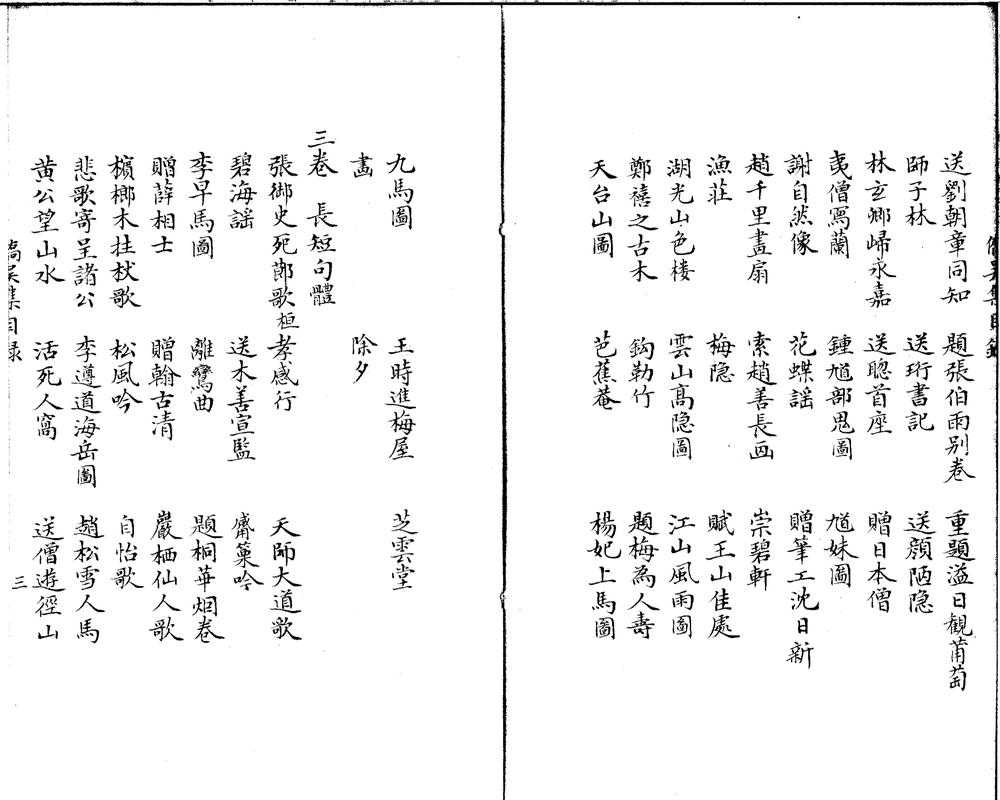 送劉朝章同知 題張伯雨别卷 重題溢日觀葡萄
師子林 送珩書記 送顔陋隐
林玄卿歸永嘉 送聦首座 贈日本僧
夷僧寫蘭 鍾馗部鬼圖 馗妹圖
謝自然像 花蝶謡 贈筆工沈日新
趙千里畫扇 索趙善長画 崇碧軒
漁莊 梅隐 賦玉山佳處
湖光山色楼 雲山髙隐圖 江山風雨圖
鄭禧之古木 鈎勒竹 題梅為人壽
天台山圖 芭蕉菴 楊妃上馬圖
九馬圖 王時進梅屋 芝雲堂
畵 除夕
三卷 長短句體
張御史死節歌 桓孝感行 天師大道歌
碧海謡 送木善宣監 觱篥吟
李早馬圖 離鸞曲 題桐華烟卷
贈薛相士 贈翰古清 巖栖仙人歌
檳榔木拄杖歌 松風吟 自怡歌
悲歌寄呈諸公 李遵道海岳圖 趙松雪人馬
黄公望山水 活死人窩 送僧遊徑山
僑吴集目録
三